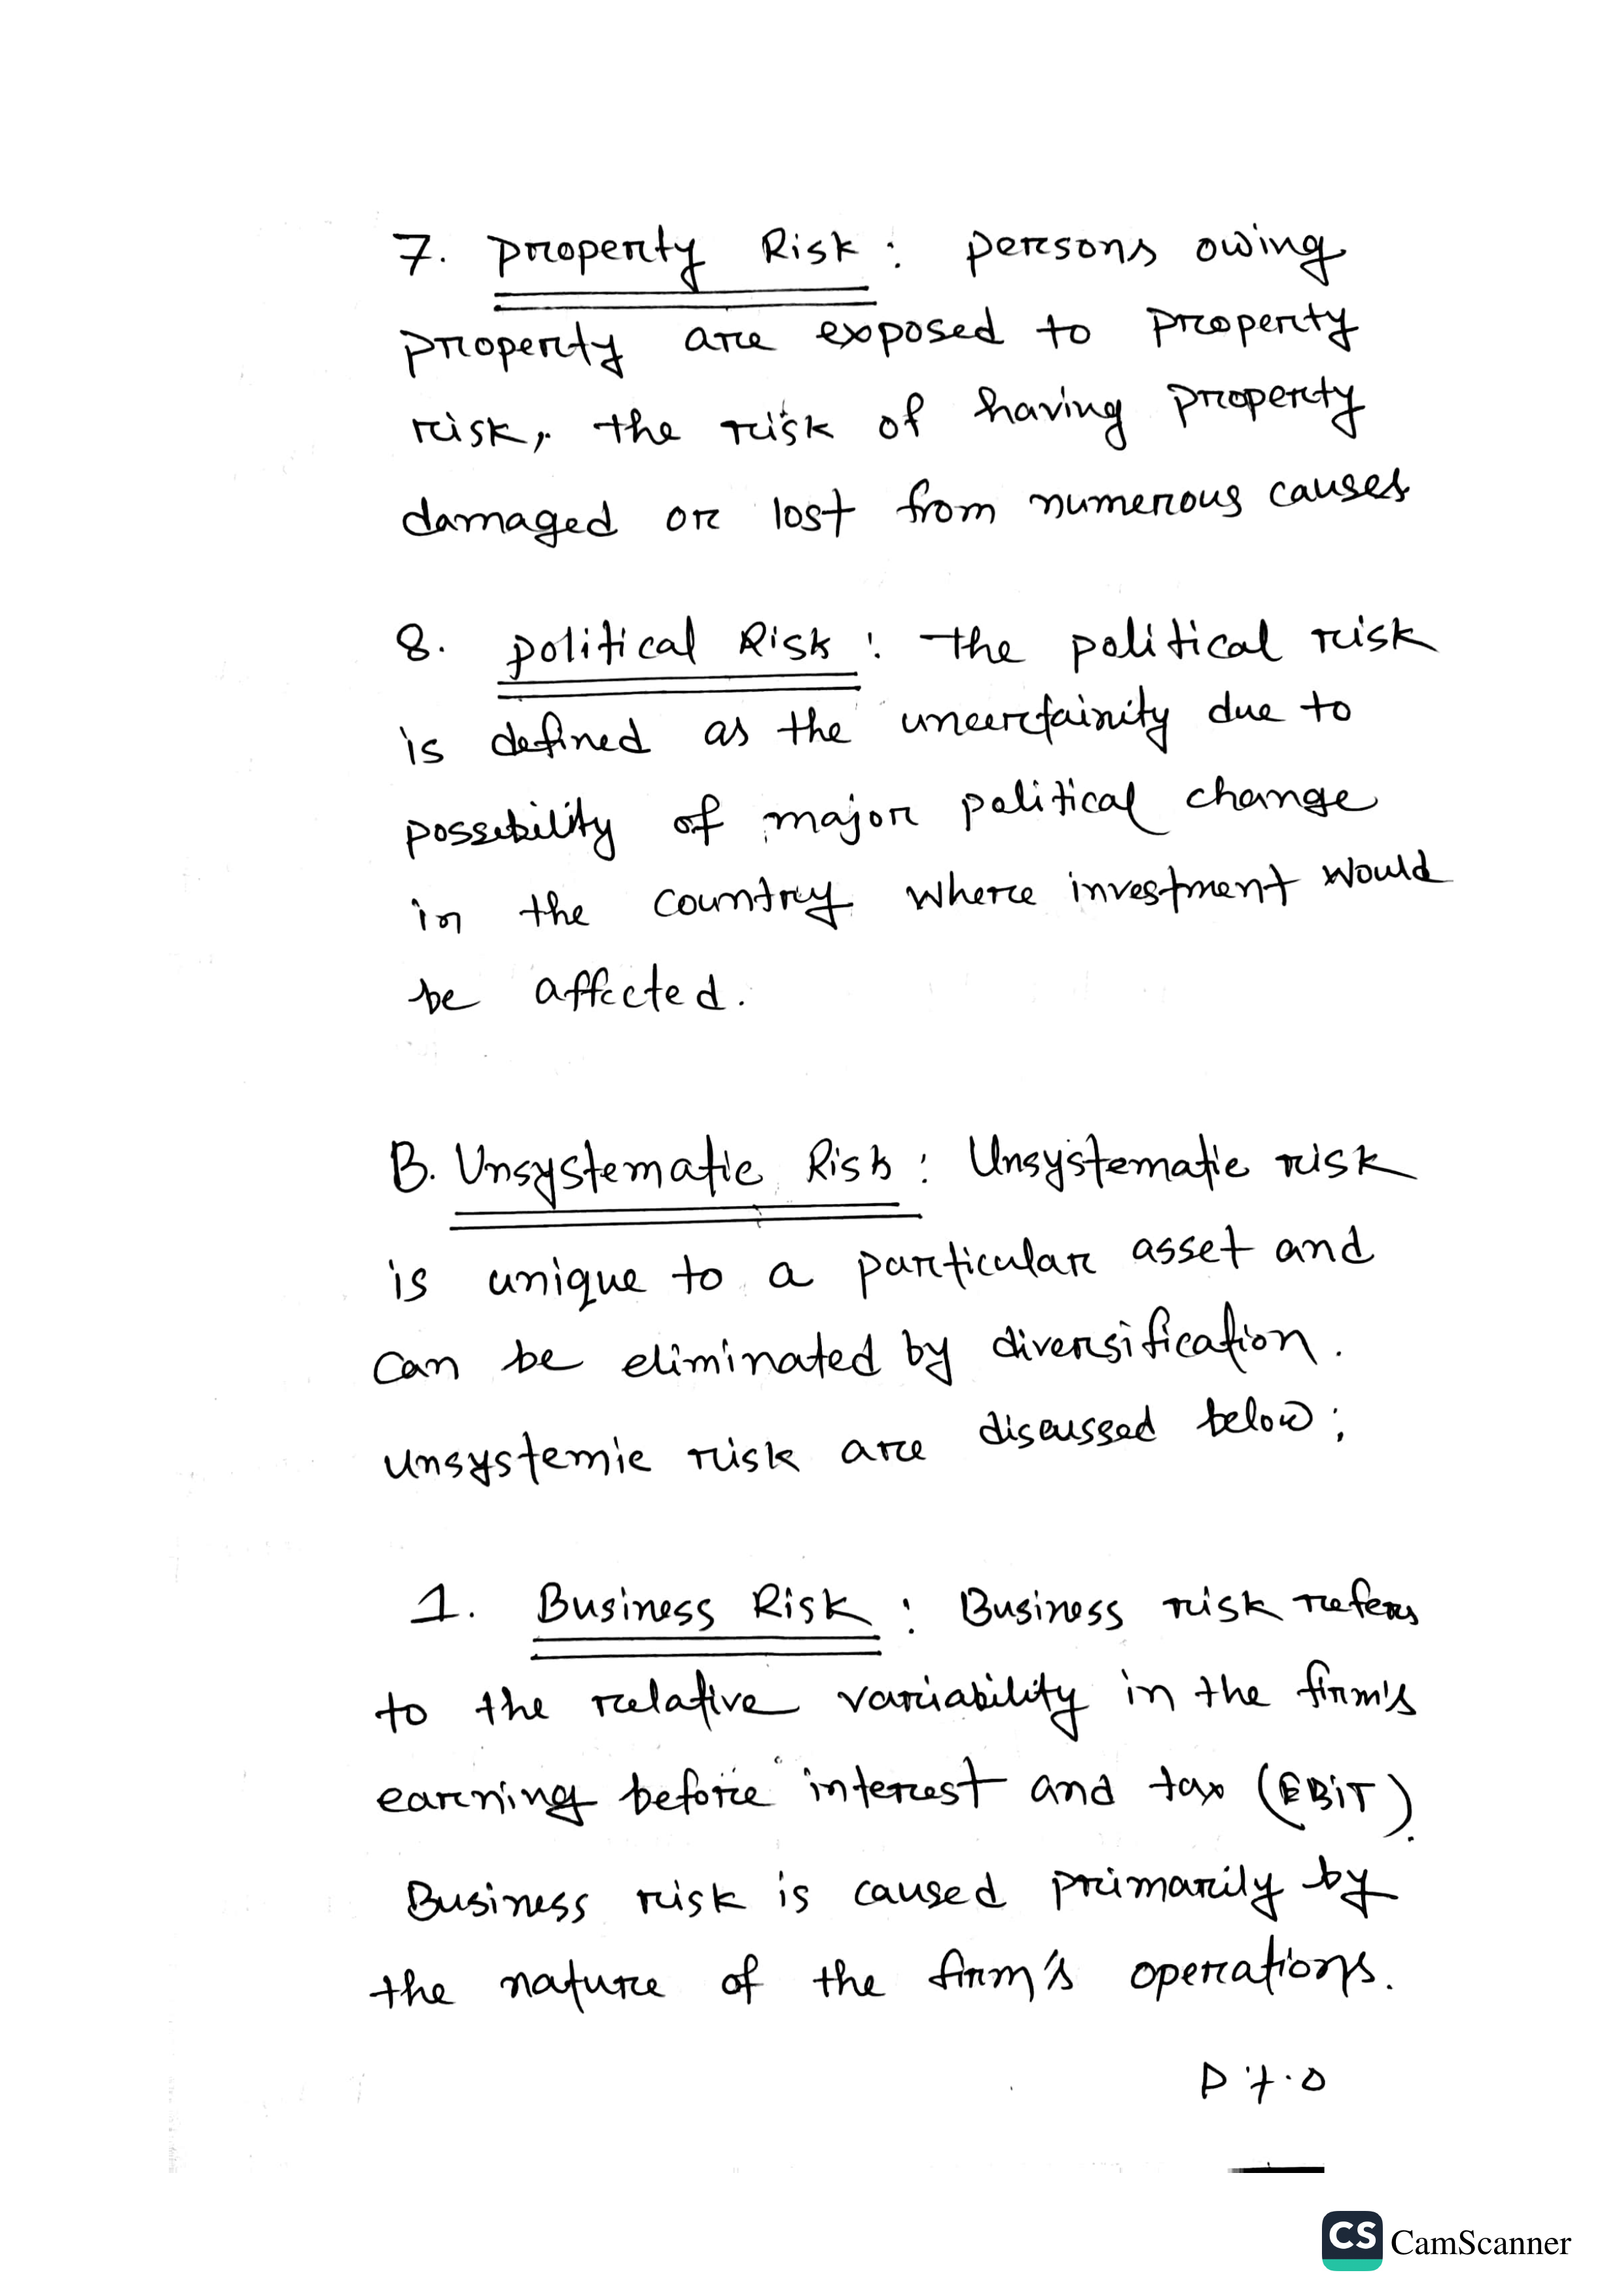 7. property Risk : persons owing
property are exposed to property
risk, the risk of having property
damaged or lost from numerous causes
8. political Risk : the political risk
is defined as the uncertainity due to
possibility of major political change
in the country where investment would
be affected.
B. Unsystematic Risk : Unsystematic risk
is unique to a particular asset and
can be eliminated by diversification.
unsystemic risk are discussed below;
1. Business Risk : Business risk refers
to the relative variability in the firm's
earning before interest and tax (EBIT).
Business risk is caused primarily by
the nature of the firm's operations.
P.t.o
CS CamScanner